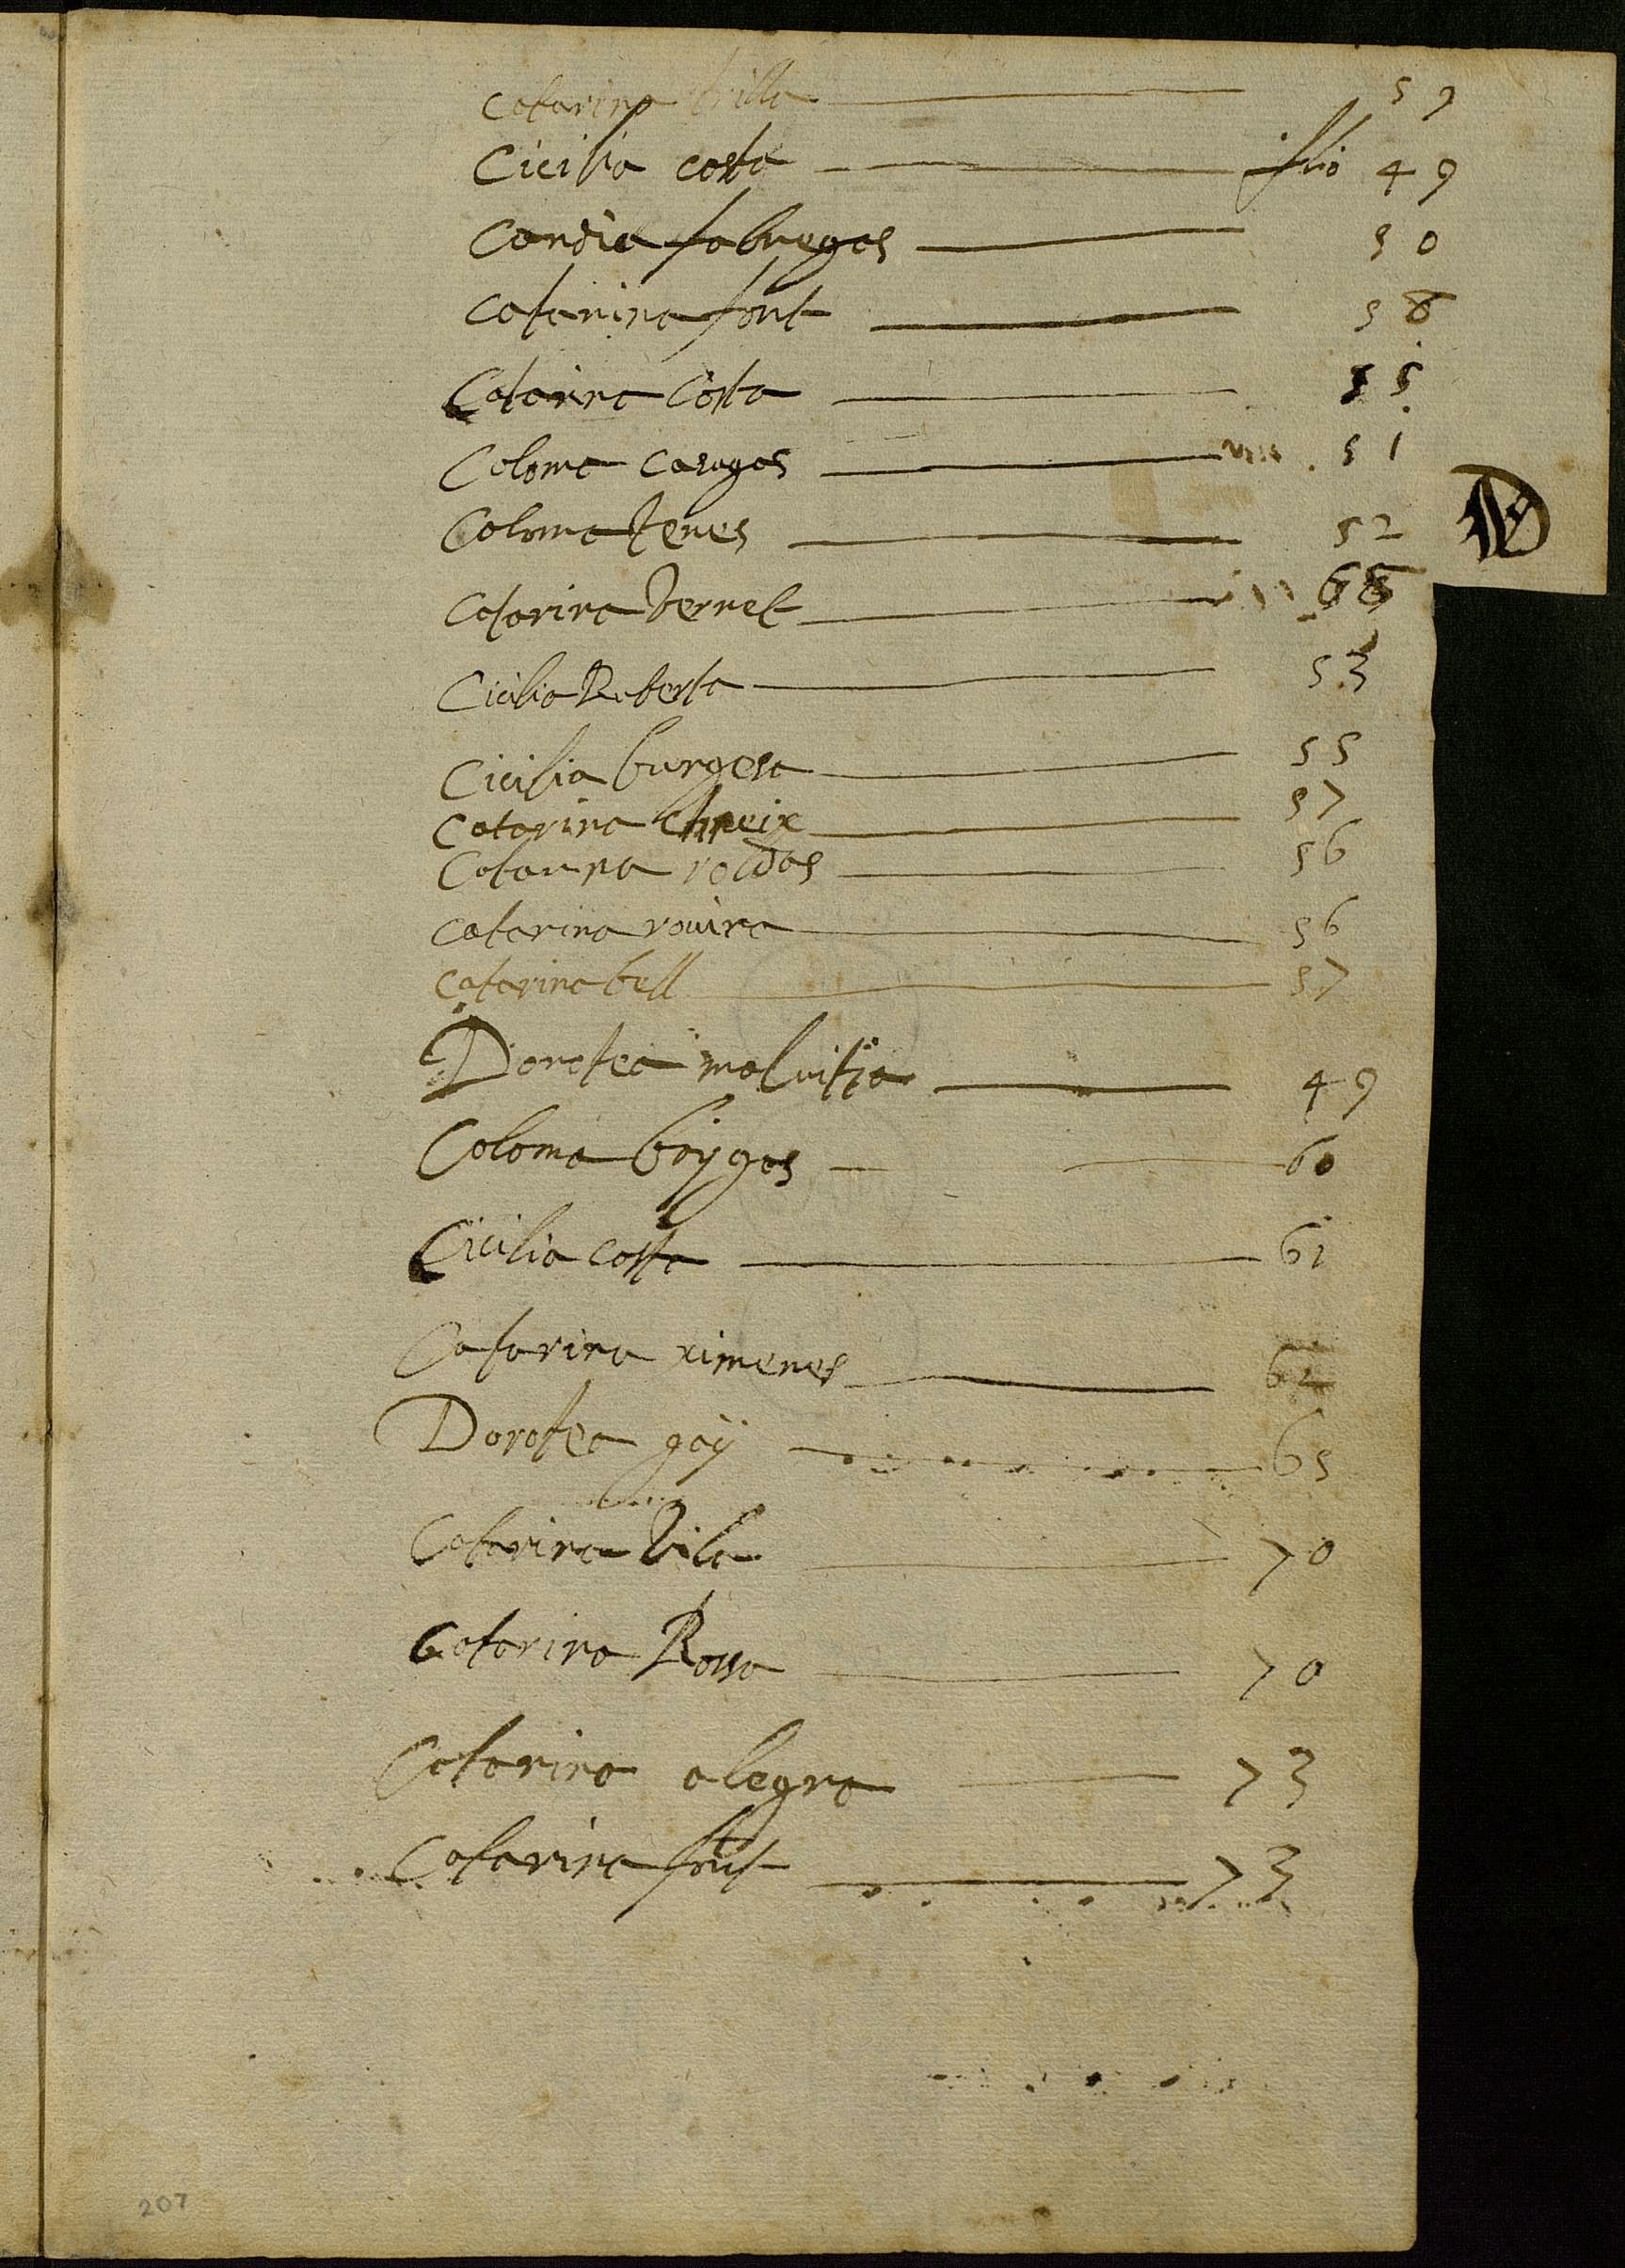 Catarina trilla 59
Cicilia costa folio 49
Candia fabregas 50
Catarina font 58
Catarina Costa 55
Coloma casagas 51
Coloma Jenes 52
D
Catarina Vernet
Cicilia Roberta 53
Cicilia burgesa 55
Catarina 57
Catarina roldos 56
Catarina rouira 56
Catarina bell 57
Dorotea 49
Coloma boygas 60
Cicilia costa 61
Catarina ximenes 62
Dorotea goÿ 65
Catarina Vila 70
Catarina Rossa 70
Catarina alegra 73
Catarina font 73
207